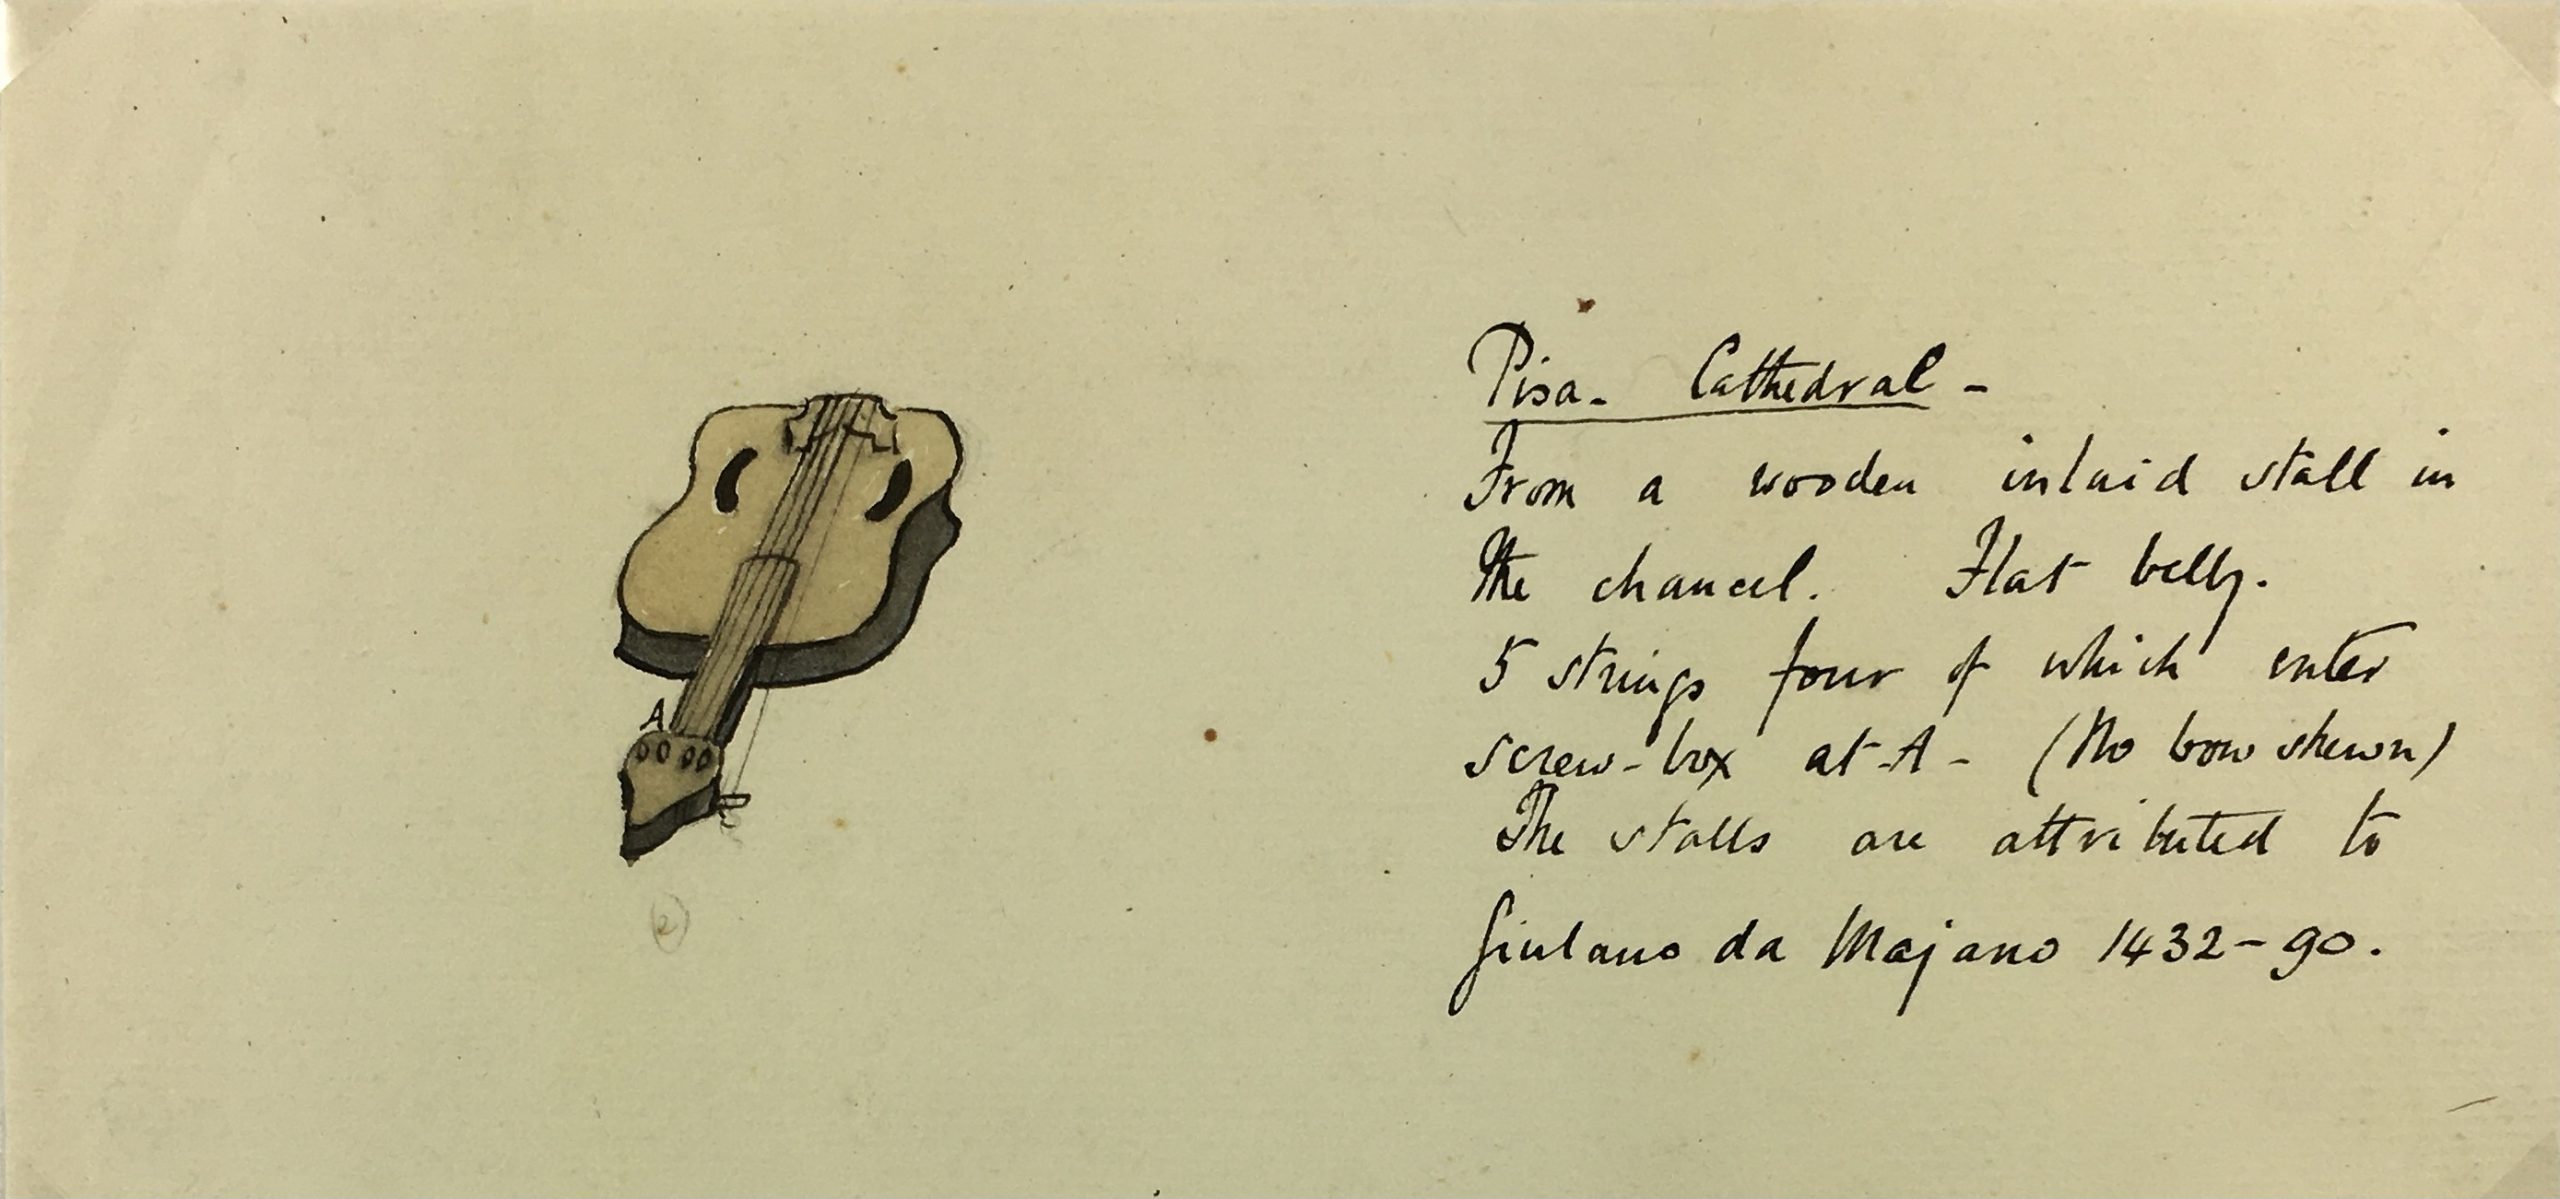 Pisa- Cathedral -
From a wooden inlaid stall in
the chancel. Flat belly.
5 strings four of which enter
screw-box at A - (No bow shewn)
The stalls are attributed to
Giulano da Majano 1432-90.
A
(2)